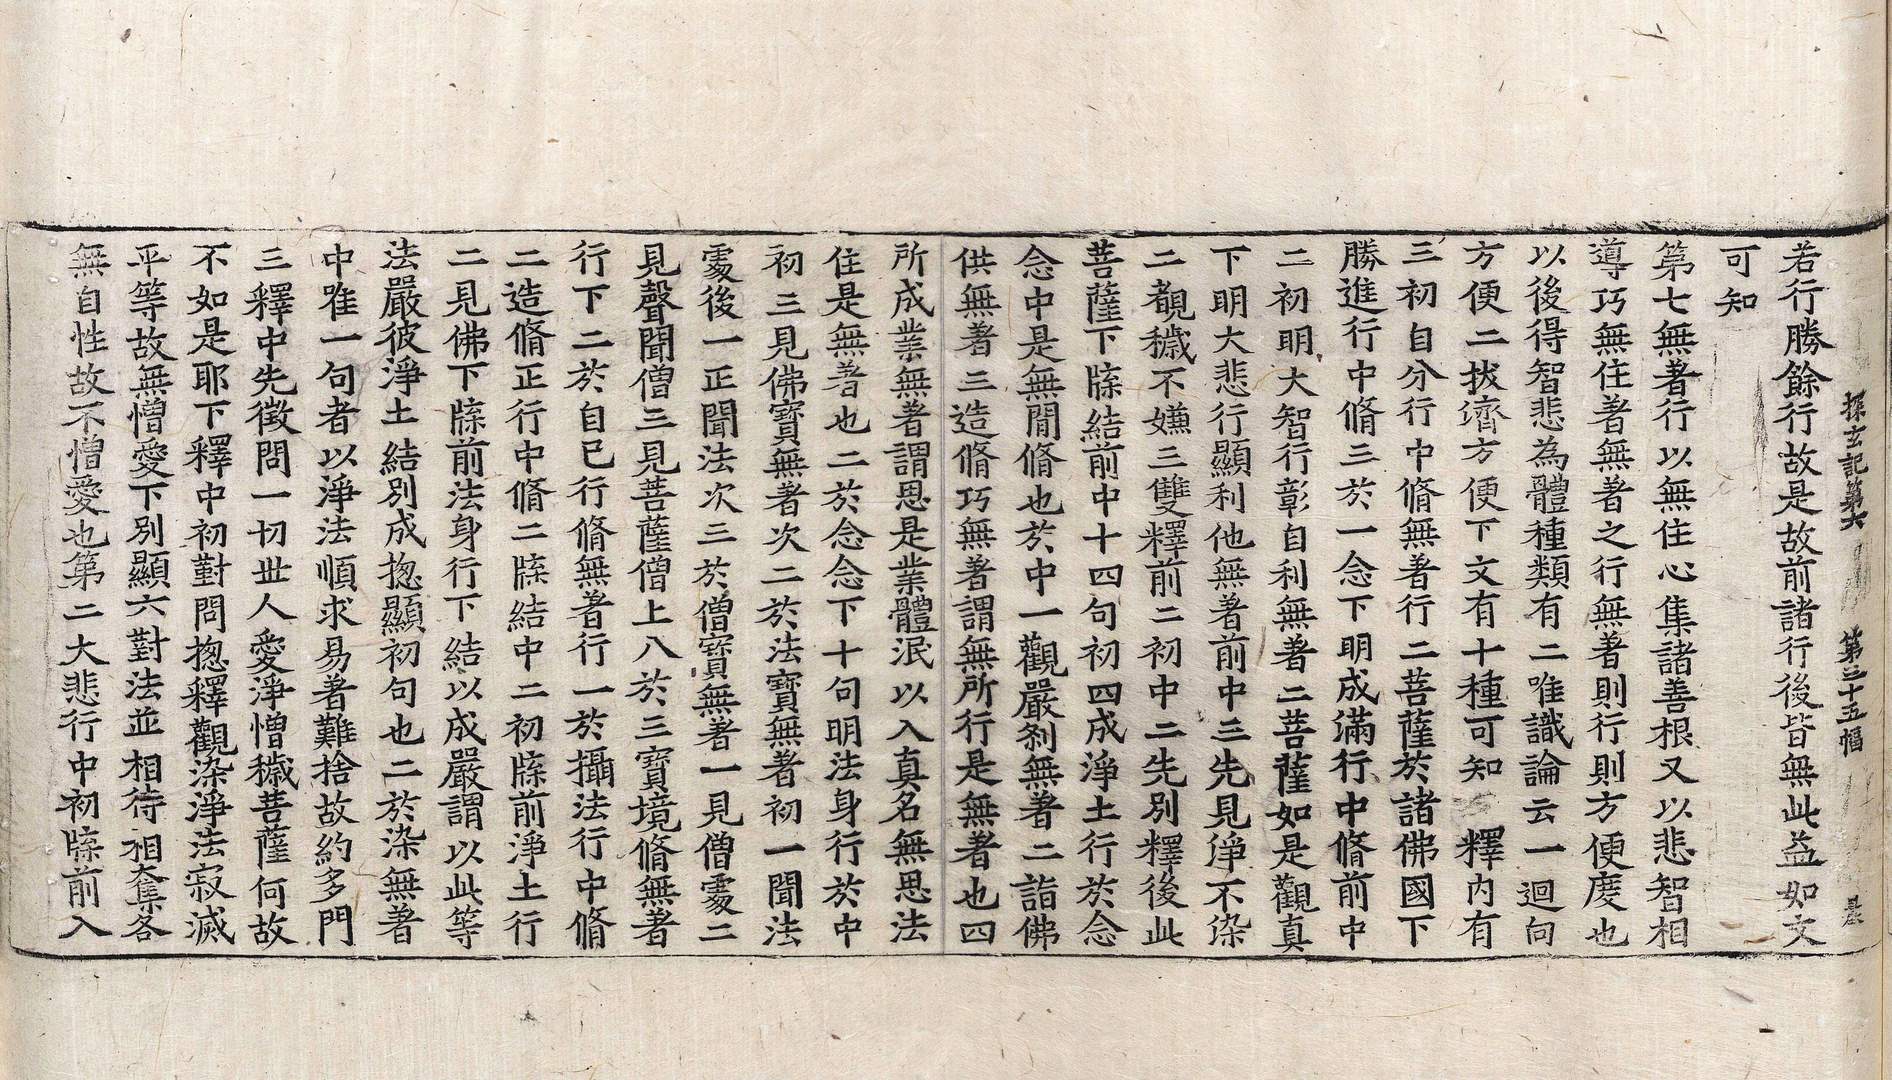 探玄記第六 第三十五幅 是
若行勝餘行故是故前諸行後皆無此益如文
可知
第七無著行以無住心集諸善根又以悲智相
導巧無住著無著之行無著則行則方便度也
以後得智悲為體種類有二唯識論云一迴向
方便二拔濟方便下文有十種可知 釋內有
三初自分行中脩無著行二菩薩於諸佛國下
勝進行中脩三於一念下明成滿行中脩前中
二初明大智行彰自利無著二菩薩如是觀真
下明大悲行顯利他無著前中三先見淨不染
二覩穢不嫌三雙釋前二初中二先別釋後此
菩薩下牒結前中十四句初四成淨土行於念
念中是無間脩也於中一觀嚴剎無著二詣佛
供無著三造脩巧無著謂無所行是無著也四
所成業無著謂恩是業體泯以入真名無思法
住是無著也二於念念下十句明法身行於中
初三見佛寶無著次二於法寶無著初一聞法
處後一正聞法次三於僧寶無著一見僧處二
見聲聞僧三見菩薩僧上八於三寶境脩無著
行下二於自已行脩無著行一於攝法行中脩
二造脩正行中脩二牒結中二初牒前淨土行
二見佛下牒前法身行下結以成嚴謂以此等
法嚴彼淨土結別成揔顯初句也二於染無著
中唯一句者以淨法順求易著難捨故約多門
三釋中先徵問一切世人愛淨憎穢菩薩何故
不如是耶下釋中初對問揔釋觀染淨法寂滅
平等故無憎愛下別顯六對法並相待相奪各
無自性故不憎愛也第二大悲行中初牒前入